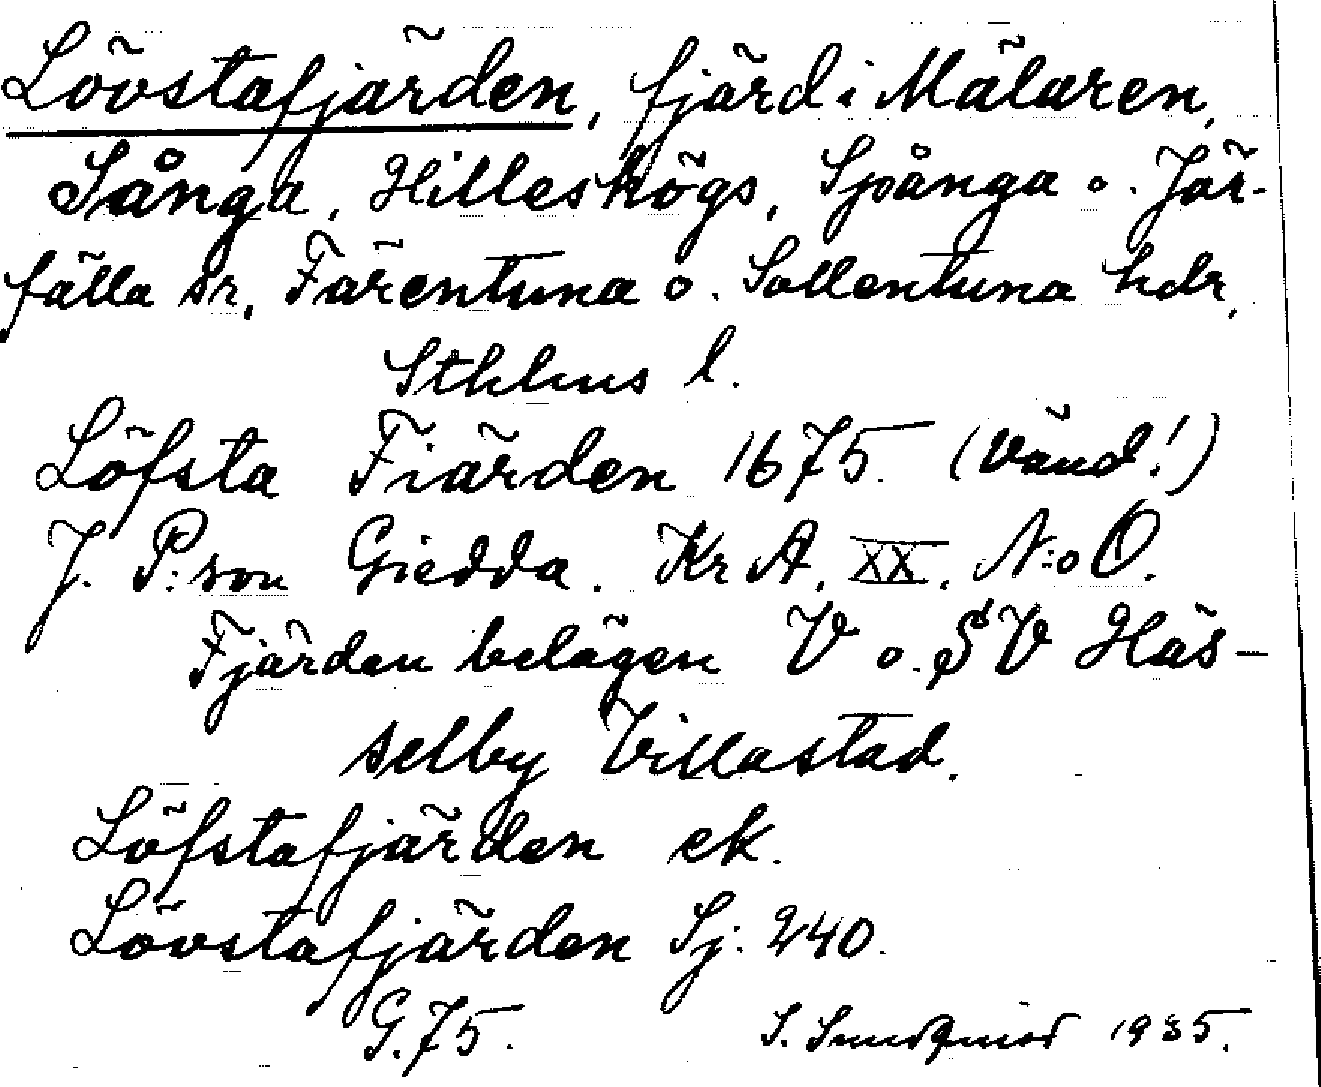 Lövstafjärden, fjärd i Mälaren,
Sånga, Hilleshögs, Spånga o. Jär-
fälla sr, Färentuna o. Sollentuna hdr,
Sthlms l.
Löfsta Fiärden 1675. (Vänd!)
J. P:son Giedda. KrA, XX, N:o O.
Fjärden belägen V o. SV Häs-
selby Villastad.
Löfstafjärden ek.
Lövstafjärden Sj: 240.
G. 75.
S. Sundqvist 1935.